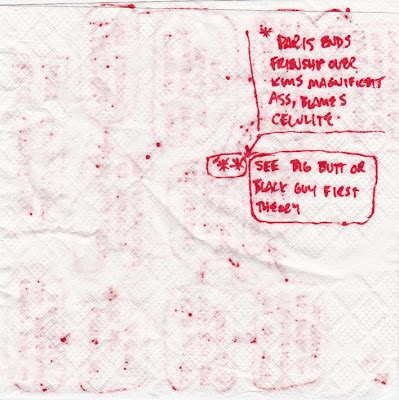 * PARIS ENDS
FRIENSHIP OVER
KIMS MAGNIFICENT
ASS, BLAMES
CELULITE.
**
SEE BIG BUTT OR
BLACK GUY FIRST
THEORY